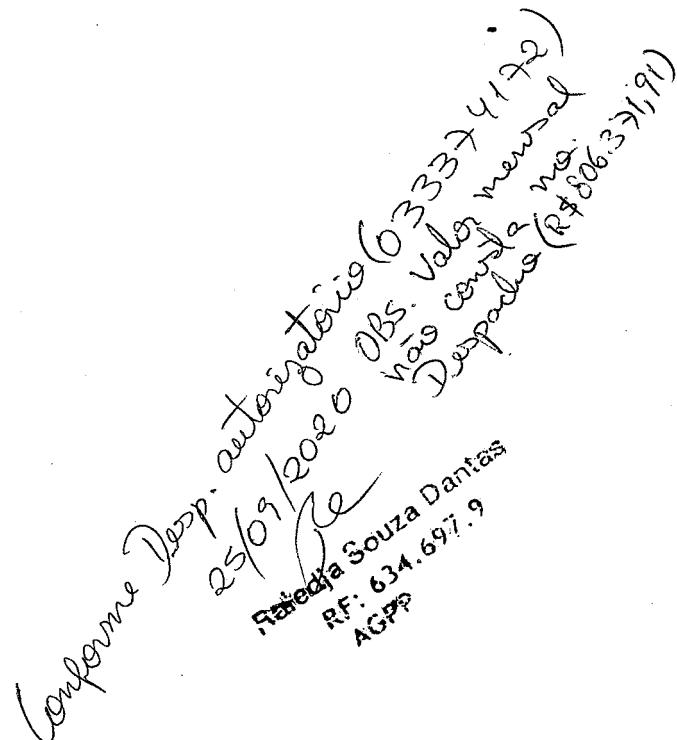 Conforme Desp. autorizatório (033374172)
25/09/2020
OBS. Valor mensal
não consta no
Despacho (R$ 806.371,91)
Souza Dantas
RF: 634.697.9
AGPP